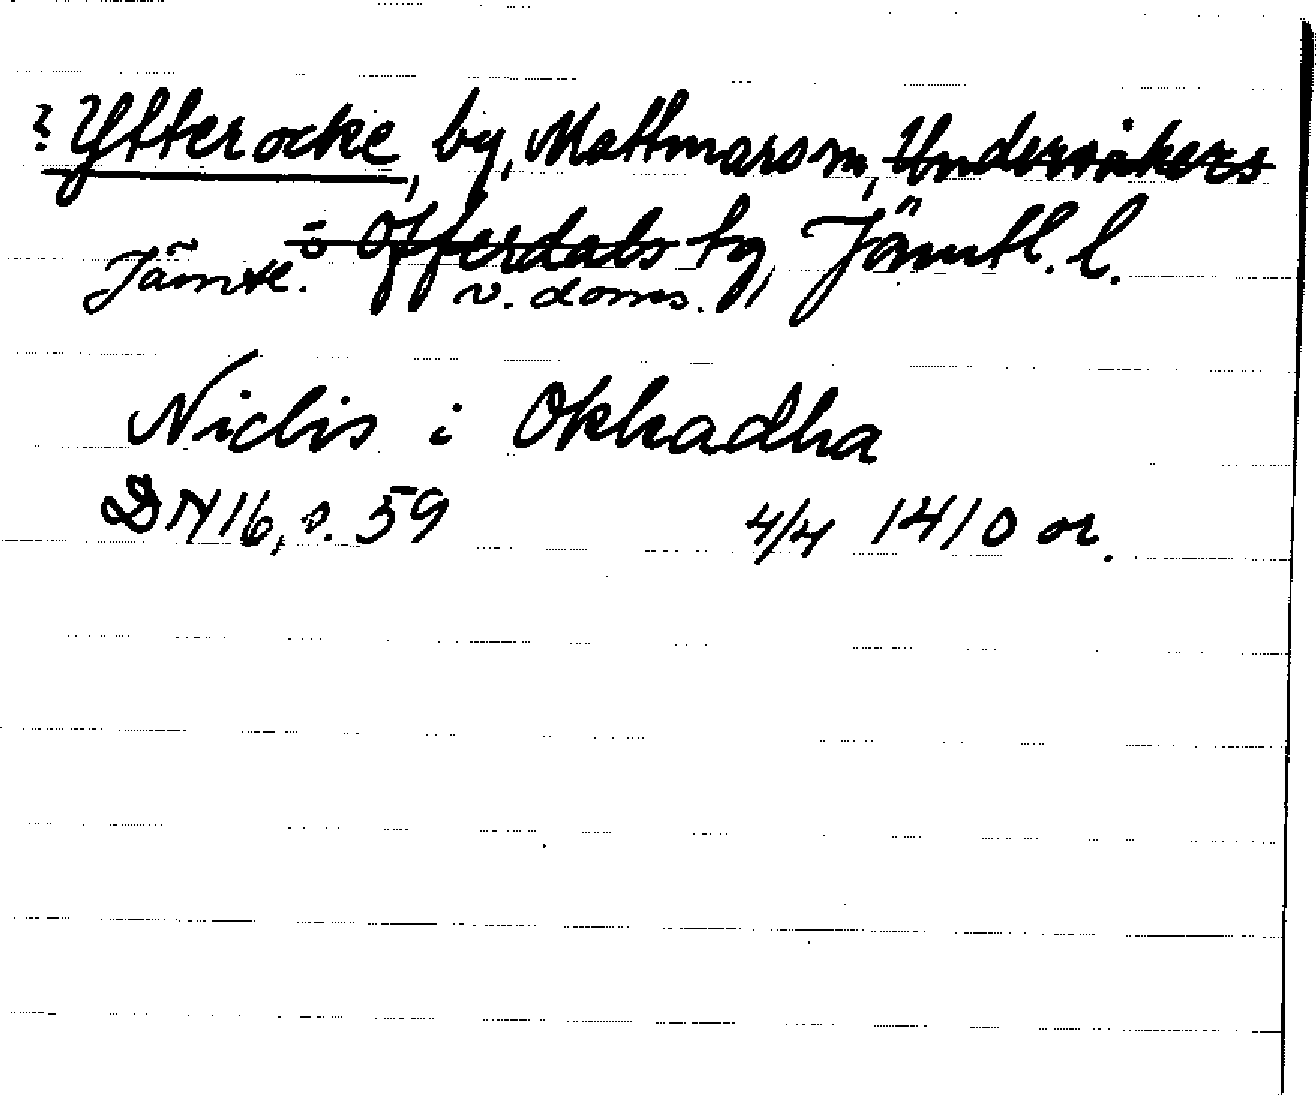 ? Ytterocke, by, Mattmars sn, Undersåkers
o Offerdals tg, Jämtl. l.
Jämtl. v. doms.
Niclis i Okkadha
DN 16, s. 59 4/4 1410 or.